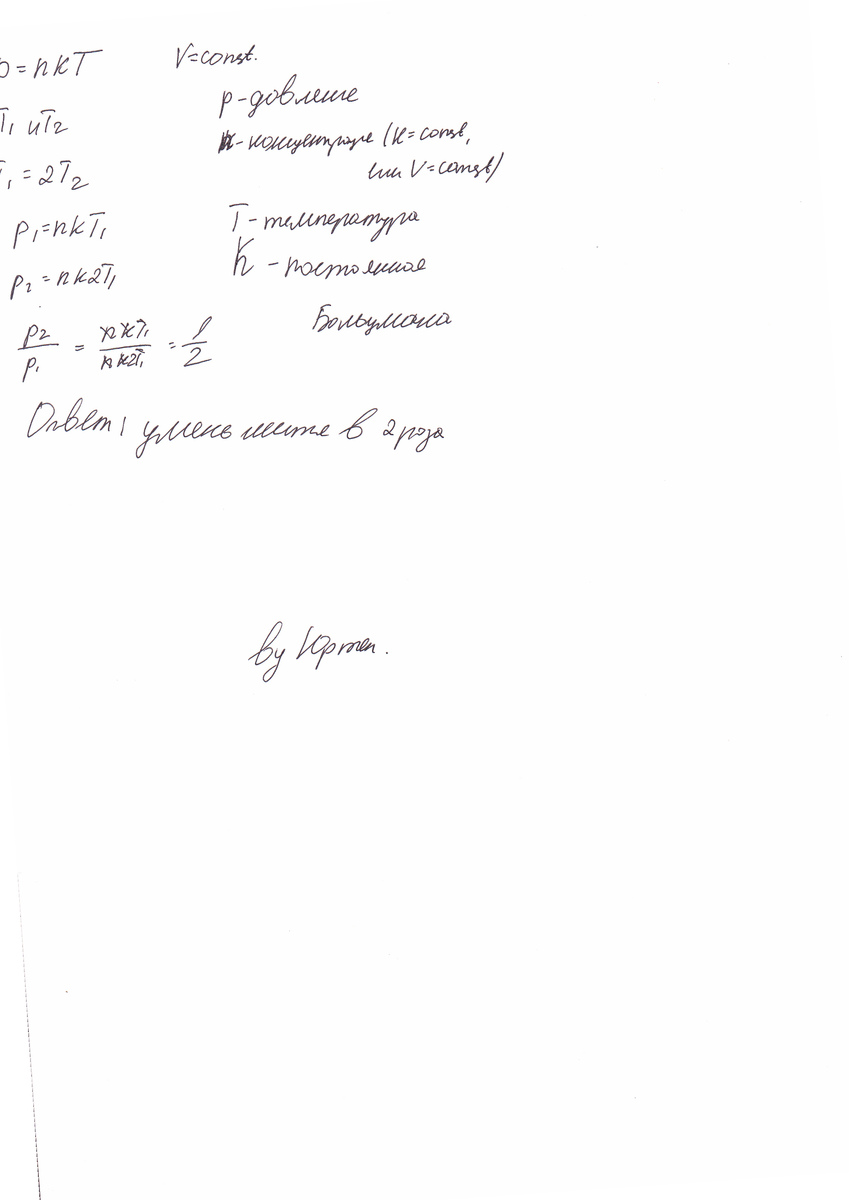 p = nkT V=const.
p - довление
T₁ и T₂
n - концентрация (n=const,
или V=const)
T₁ = 2T₂
p₁ = nkT₁ T - температура
p₂ = nk2T₁ k - постоянная
Больцмана
p₂/p₁ = nkT₁/nk2T₁ = 1/2
Ответ: уменьшится в 2 раза
by Юртел.